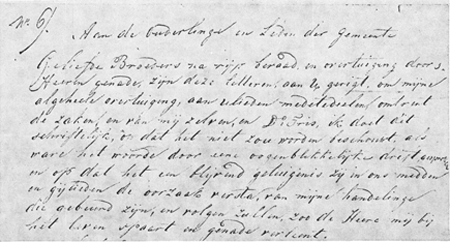 No. 6.
Aan de ouderlinge en Leden der Gemeente
Geliefde Broeders na rijp beraad, en overtuiging door s
Heeren genade, zijn deze letteren, aan U gerigt, om mijne
algeheele overtuiging, aan ulieden medetedeelen, omtrent
de zaken, en van mij zelven, en Ds. ik doet dit
schriftelijk, op dat het niet zou worden beschouwt, als
ware het woorde door eene oogenblikkelijke drift
en op dat het een blijvend getuigenis zij in ons midden
en gijlieden de oorzaak verstaa, van mijne handelinge
die gebeurd zijn, en volgen zullen, zoo de Heere mij bij
het leven spaart en genade verleent.